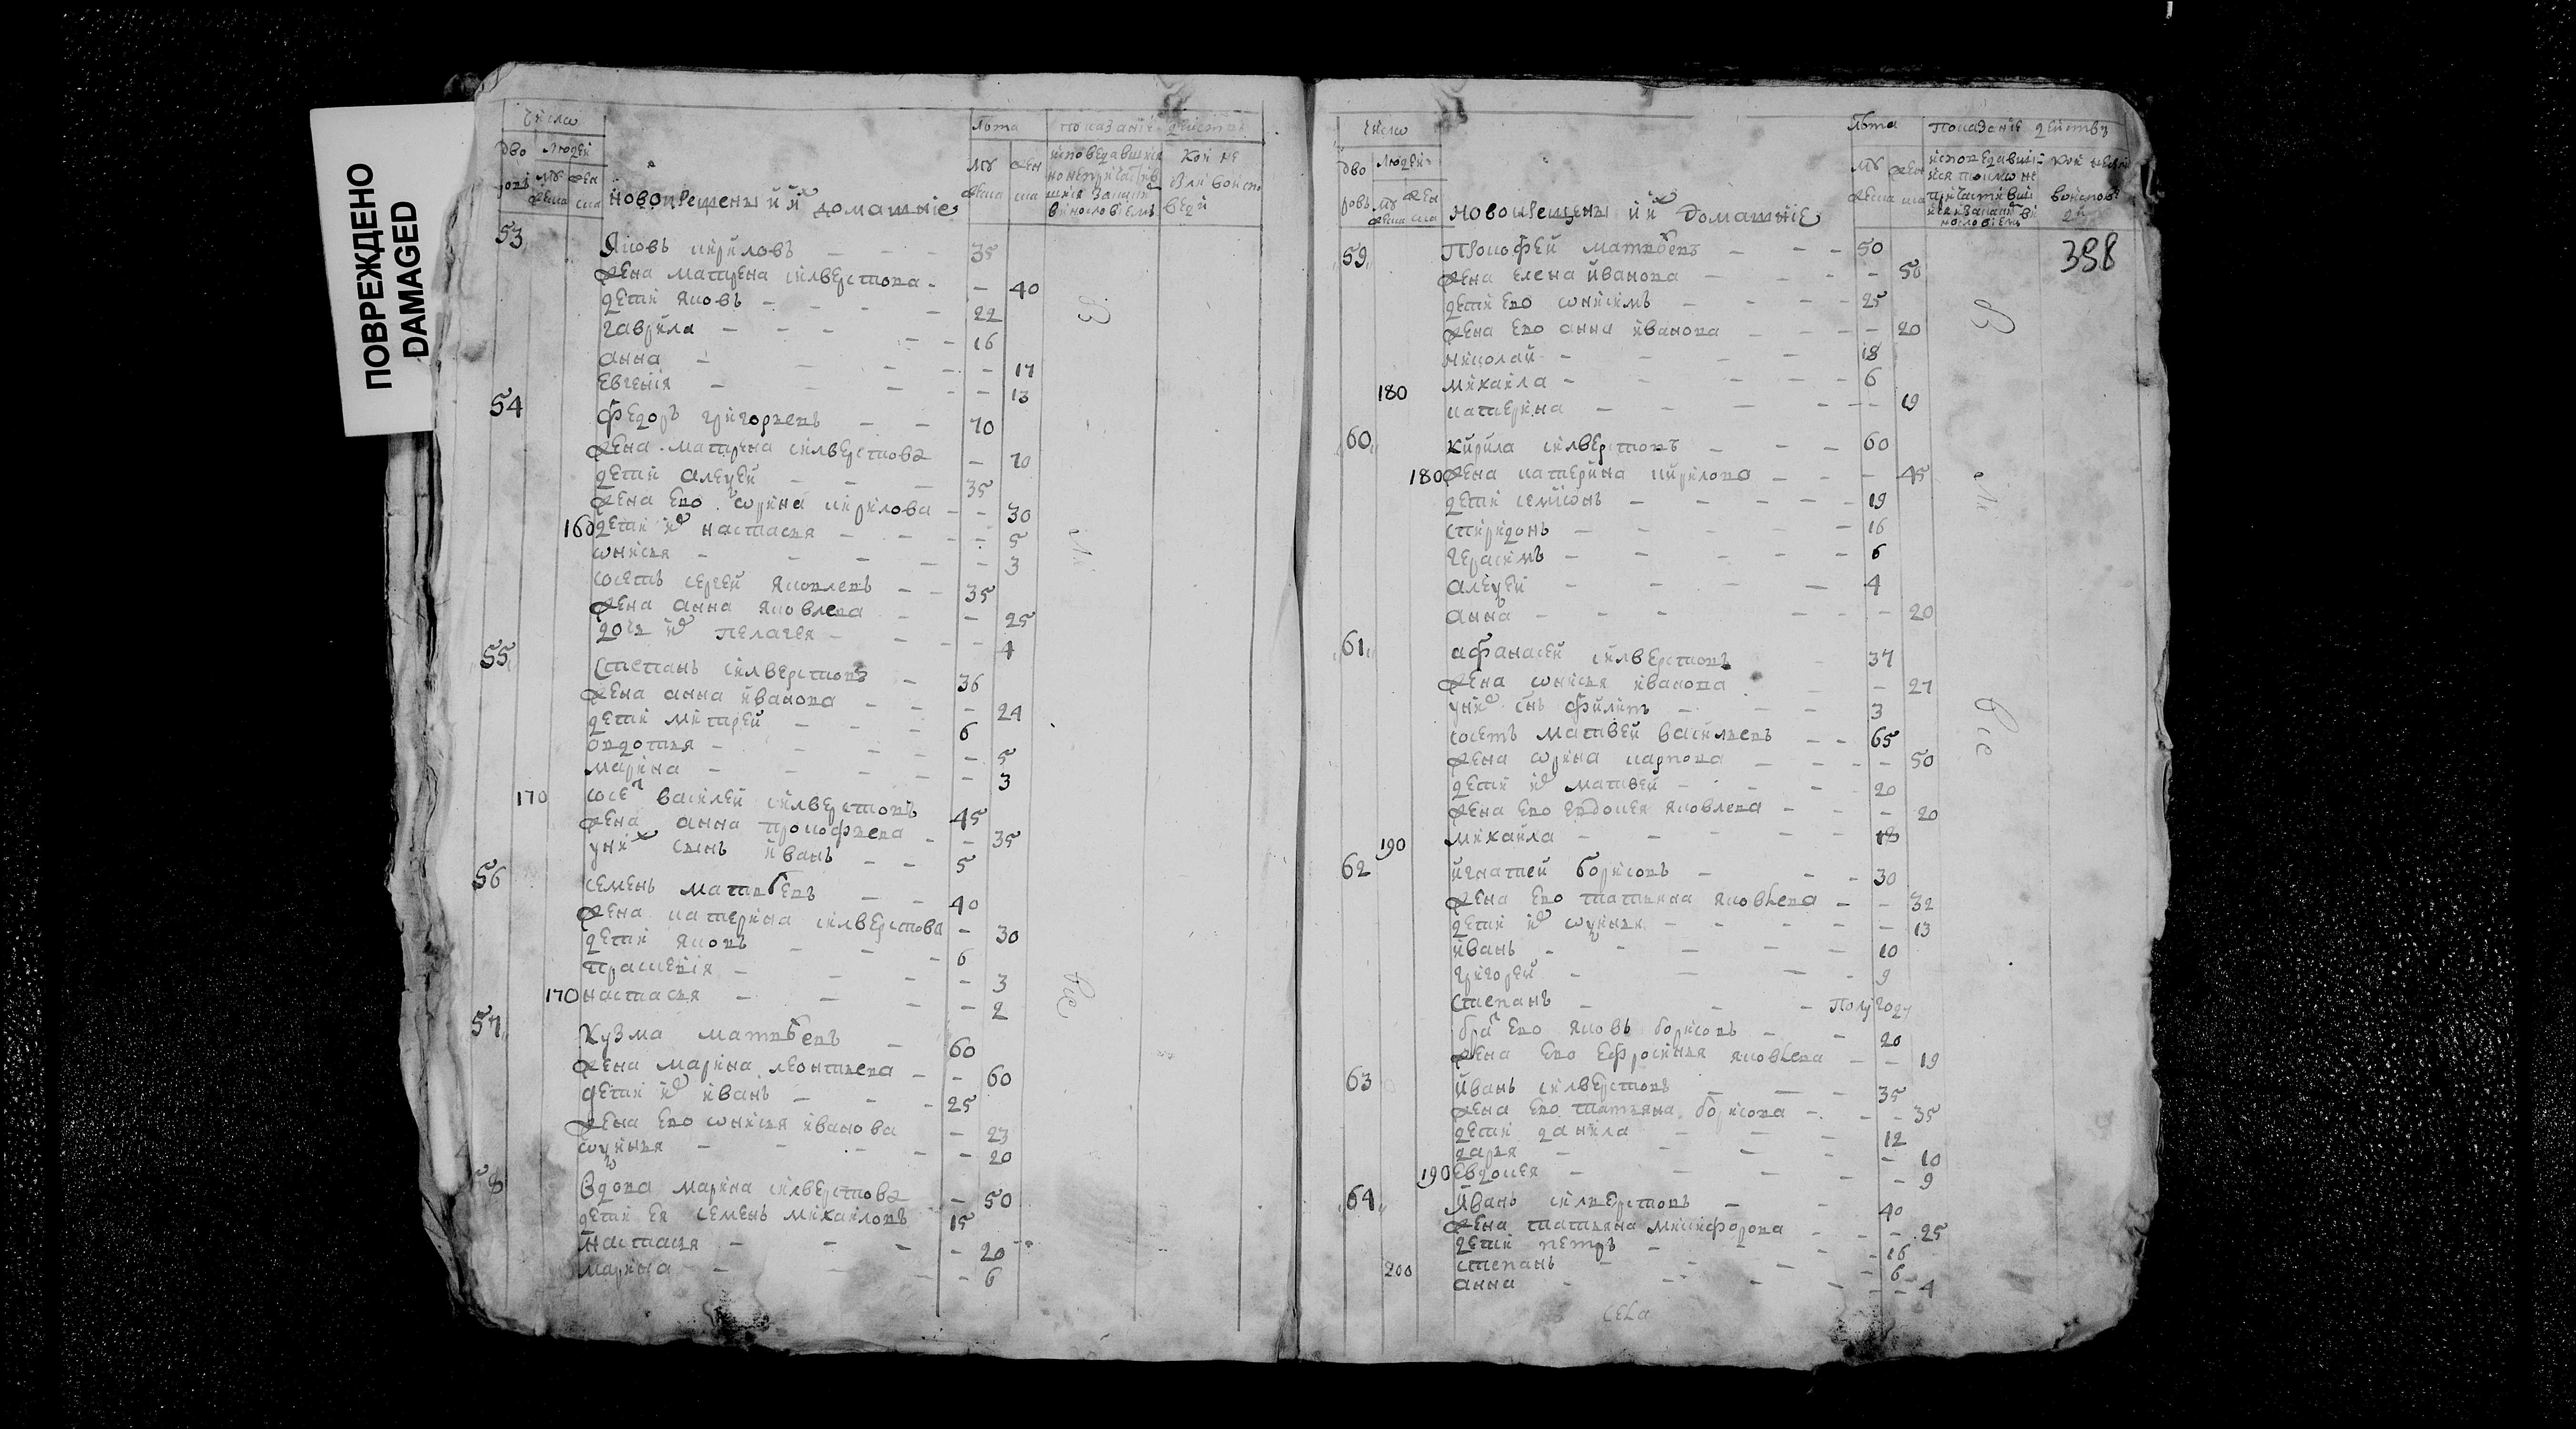 ПОВРЕЖДЕНО
DAMAGED
Число
Лѣта
показание действ
дво
людей
му
жен
исповедавшияся
кои не
ровъ
му
жен
жеска
ска
но непричастив
были во испо
жеска
ска
новокрещены и их домашние
шияся за каким
веди
винословіемъ
53
Яковъ кириловъ - - - 35
жена матрена силверстова - - 40
дети яковъ - - - 22
гаврила - - - 16
анна - - - 17
евгения - - - 13
54
Федоръ григорьевъ - - 70
жена матрена силверстова - 70
дети алеѯей - - 35
жена ево ѡрина кирилова - - 30
160 дети их настасья - - - 5
ѡнисья - - - 3
сосетъ сергей яковлевъ - - 35
жена анна яковлева - - 25
дочь их пелагея - - - 4
55
Степанъ силверстовъ - 36
жена анна иванова - - - 24
дети митрей - - - 6
овдотья - - - 5
марина - - - 3
170 сосет василей силверстовъ 45
жена анна прокофьева - - 35
у них сынъ иванъ - - 5
56
семенъ матвѣевъ - - 40
жена катерина силверстова - 30
дети яковъ - - - 6
праскевия - - - 3
170 настасья - - - 2
57
Кузма матвѣевъ - 60
жена марина леонтьева - - 60
дети их иванъ - - - 25
жена ево ѡнисья иванова - 23
- - - 20
58
Вдова марина силверстова - 50
дети ея семенъ михаиловъ 15
настасья - - - 20
марина - - - 6
Число
Лѣта
показание действъ
дво
людей
му
жен
исповедавши
кои не
ровъ
му
жен
жеска
ска
ися токмо не
были
жеска
ска
новокрещены и их домашние
причастивши
во испове
ися за каким ви
ди
нословиемъ
398
59
Прокофей матвѣевъ - - - 50
жена елена иванова - - - 50
дети ево ѡнисимъ - - - 25
жена ево анна иванова - - - 20
николай - - - 18
180 михаила - - - 6
катерина - - - 19
60
Кирила силверстовъ - - 60
180 жена катерина кирилова - - - 45
дети семионъ - - - 19
спиридонъ - - - 16
герасимъ - - - 6
алеѯей - - - 4
анна - - - 20
61
афанасей силверстовъ - 37
жена ѡнисья иванова - - 27
у них снъ филипъ - - - 3
сосетъ матвей васильевъ - - 65
жена ѡрина карпова - - - 50
дети их матвей - - - 20
жена ево евдокея яковлева - - - 20
190 михаила - - - 18
62
игнатей борисовъ - - - 30
жена ево татьяна яковлева - - 32
дети их - - - 13
иванъ - - - 10
григорей - - - 9
степанъ - - - полугоду
брат ево яковъ борисовъ - - 20
жена ево ефросинья яковлева - - 19
63
иванъ силверстовъ - - - 35
жена ево татьяна борисова - - - 35
дети данила - - - 12
дарья - - - 10
190 евдокея - - - 9
64
иванъ силверстовъ - - 40
жена татьяна микифорова - - - 25
дети петръ - - - 16
200 степанъ - - - 6
анна - - - 4
села